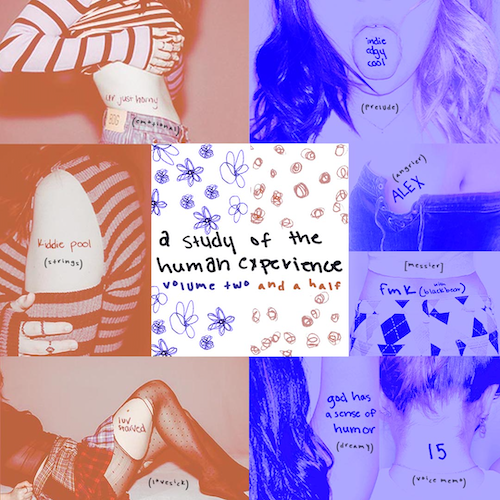 ur just horny
BDG
(emotional)
indie
edgy
cool
(prelude)
kiddie pool
(strings)
a study of the
human experience
volume two and a half
(angrier)
ALEX
[messier]
fmk (with blackbear)
luv
starved
(lovesick)
god has
a sense of
humor
(dreamy)
15
(voice memo)